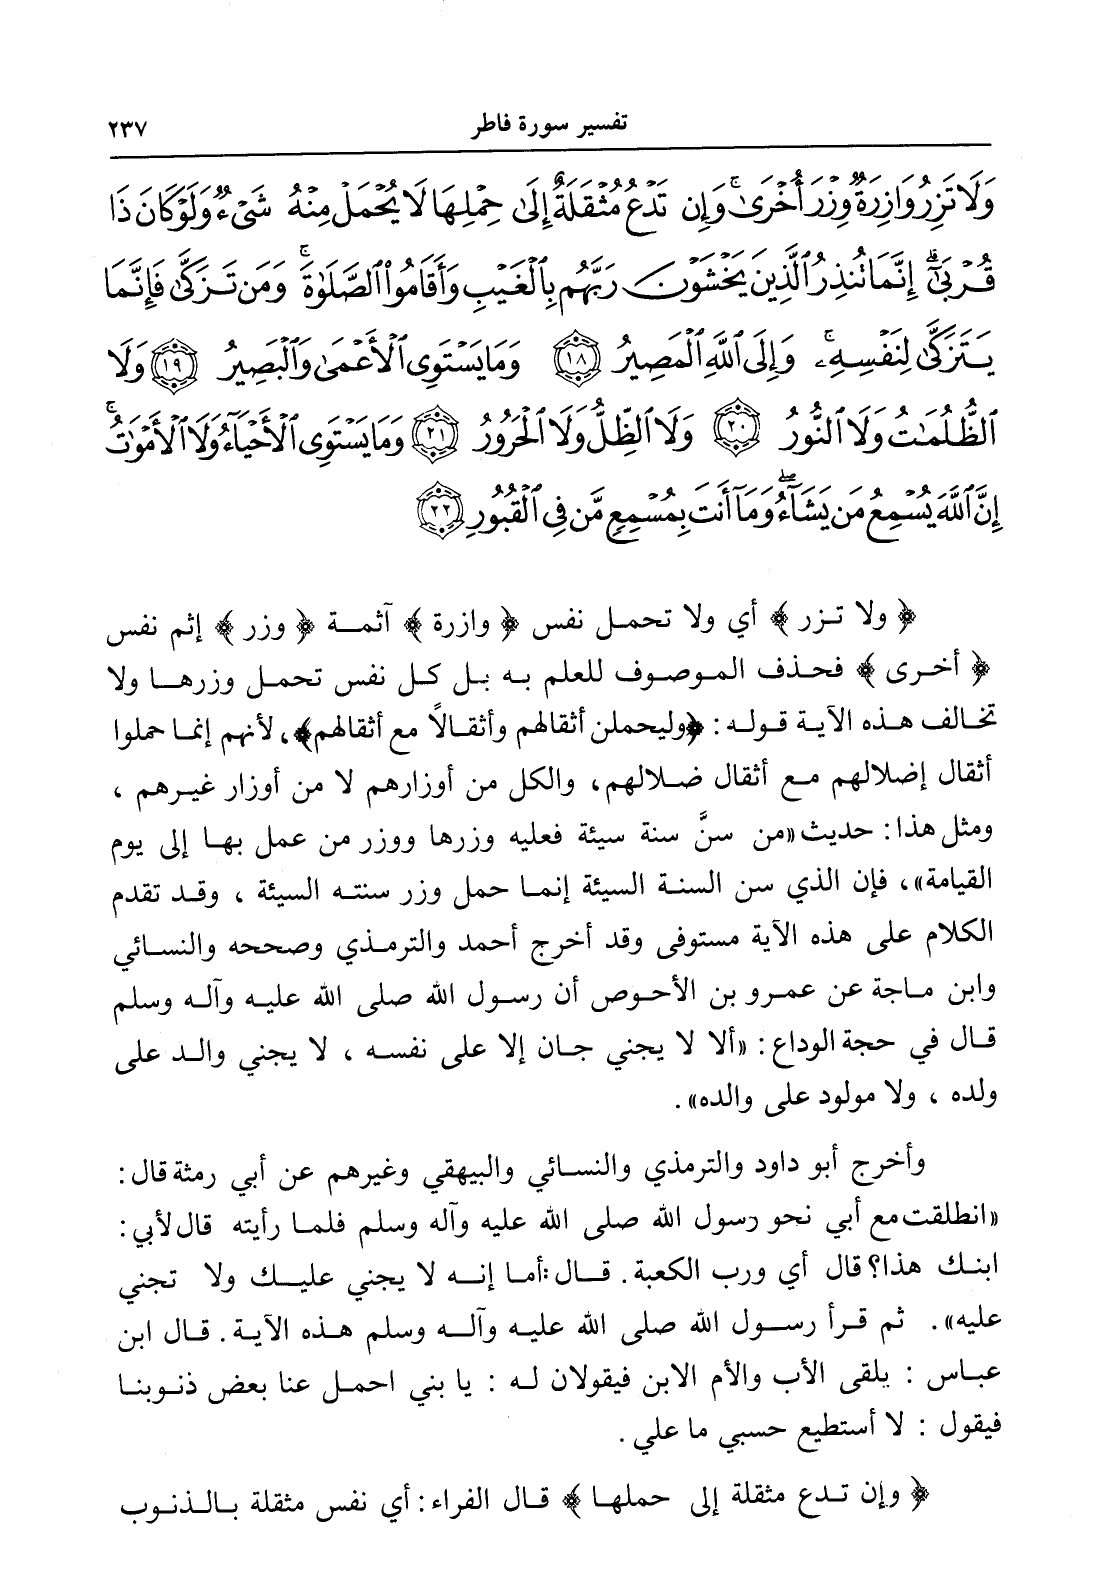 تفسير سورة فاطر ٢٣٧
وَلَا تَزِرُ وَازِرَةٌ وِزْرَ أُخْرَىٰ ۚ وَإِن تَدْعُ مُثْقَلَةٌ إِلَىٰ حِمْلِهَا لَا يُحْمَلْ مِنْهُ شَىْءٌ وَلَوْ كَانَ ذَا
قُرْبَىٰٓ ۗ إِنَّمَا تُنذِرُ ٱلَّذِينَ يَخْشَوْنَ رَبَّهُم بِٱلْغَيْبِ وَأَقَامُوا۟ ٱلصَّلَوٰةَ ۚ وَمَن تَزَكَّىٰ فَإِنَّمَا
يَتَزَكَّىٰ لِنَفْسِهِۦ ۚ وَإِلَى ٱللَّهِ ٱلْمَصِيرُ ١٨ وَمَا يَسْتَوِى ٱلْأَعْمَىٰ وَٱلْبَصِيرُ ١٩ وَلَا
ٱلظُّلُمَٰتُ وَلَا ٱلنُّورُ ٢٠ وَلَا ٱلظِّلُّ وَلَا ٱلْحَرُورُ ٢١ وَمَا يَسْتَوِى ٱلْأَحْيَآءُ وَلَا ٱلْأَمْوَٰتُ ۚ
إِنَّ ٱللَّهَ يُسْمِعُ مَن يَشَآءُ ۖ وَمَآ أَنتَ بِمُسْمِعٍ مَّن فِى ٱلْقُبُورِ ٢٢
﴿ ولا تزر ﴾ أي ولا تحمل نفس ﴿ وازرة ﴾ آثمة ﴿ وزر ﴾ إثم نفس
﴿ أخرى ﴾ فحذف الموصوف للعلم به بل كل نفس تحمل وزرها ولا
تخالف هذه الآية قوله : ﴿وليحملن أثقالهم وأثقالاً مع أثقالهم﴾، لأنهم إنما حملوا
أثقال إضلالهم مع أثقال ضلالهم، والكل من أوزارهم لا من أوزار غيرهم ،
ومثل هذا: حديث «من سنَّ سنة سيئة فعليه وزرها ووزر من عمل بها إلى يوم
القيامة»، فإن الذي سن السنة السيئة إنما حمل وزر سنته السيئة ، وقد تقدم
الكلام على هذه الآية مستوفى وقد أخرج أحمد والترمذي وصححه والنسائي
وابن ماجة عن عمرو بن الأحوص أن رسول الله صلى الله عليه وآله وسلم
قال في حجة الوداع : «ألا لا يجني جان إلا على نفسه ، لا يجني والد على
ولده ، ولا مولود على والده».
وأخرج أبو داود والترمذي والنسائي والبيهقي وغيرهم عن أبي رمثة قال :
«انطلقت مع أبي نحو رسول الله صلى الله عليه وآله وسلم فلما رأيته قال لأبي :
ابنك هذا؟ قال أي ورب الكعبة. قال: أما إنه لا يجني عليك ولا تجني
عليه». ثم قرأ رسول الله صلى الله عليه وآله وسلم هذه الآية. قال ابن
عباس : يلقى الأب والأم الابن فيقولان له : يا بني احمل عنا بعض ذنوبنا
فيقول : لا أستطيع حسبي ما علي .
﴿ وإن تدع مثقلة إلى حملها ﴾ قال الفراء : أي نفس مثقلة بالذنوب